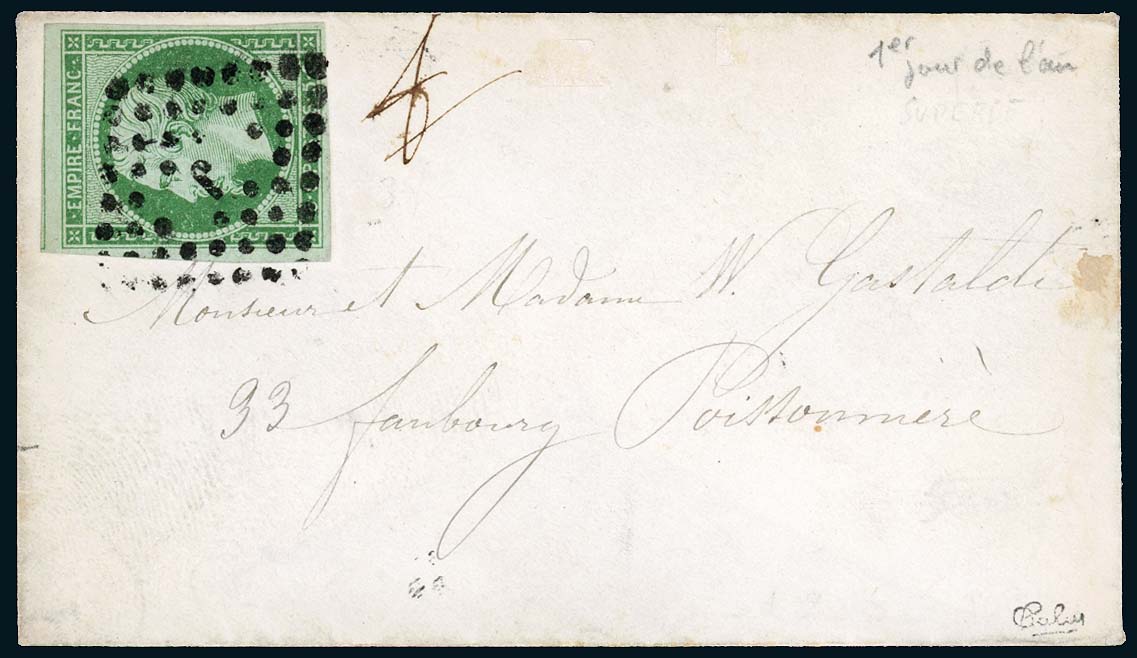 EMPIRE · FRANC ·
1er
jour de l'an
SUPERBE
Monsieur et Madame W. Gastaldi
33 faubourg Poissonnière
Calves